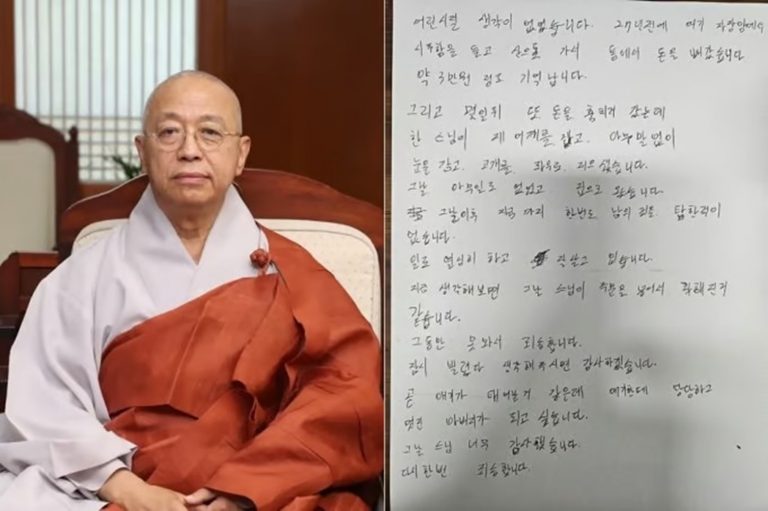 어린시절 생각이 없었습니다. 27년전에 여기 자장암에서
시주함을 들고 산으로 가서 통에서 돈을 빼갔습니다
약 3만원 정도 기억납니다.
그리고 몇일뒤 또 돈을 훔치러 갔는데
한 스님이 제 어깨를 잡고, 아무말없이
눈을 감고, 고개를, 좌우로, 저으셨습니다.
그날 아무일도 없었고 집으로 왔습니다.
그날이후 지금까지 한번도 남의 것을 탐한적이
없습니다.
일도 열심히 하고 잘 살고 있습니다.
지금 생각해보면 그날 스님이 주문을 넣어서 착해진거
같습니다.
그동안 못와서 죄송합니다.
잠시 빌렸다 생각해주시면 감사하겠습니다.
곧 애기가 태어날거 같은데 애기한테 당당하고
멋진 아버지가 되고 싶습니다.
그날 스님 너무 감사했습니다.
다시한번 죄송합니다.